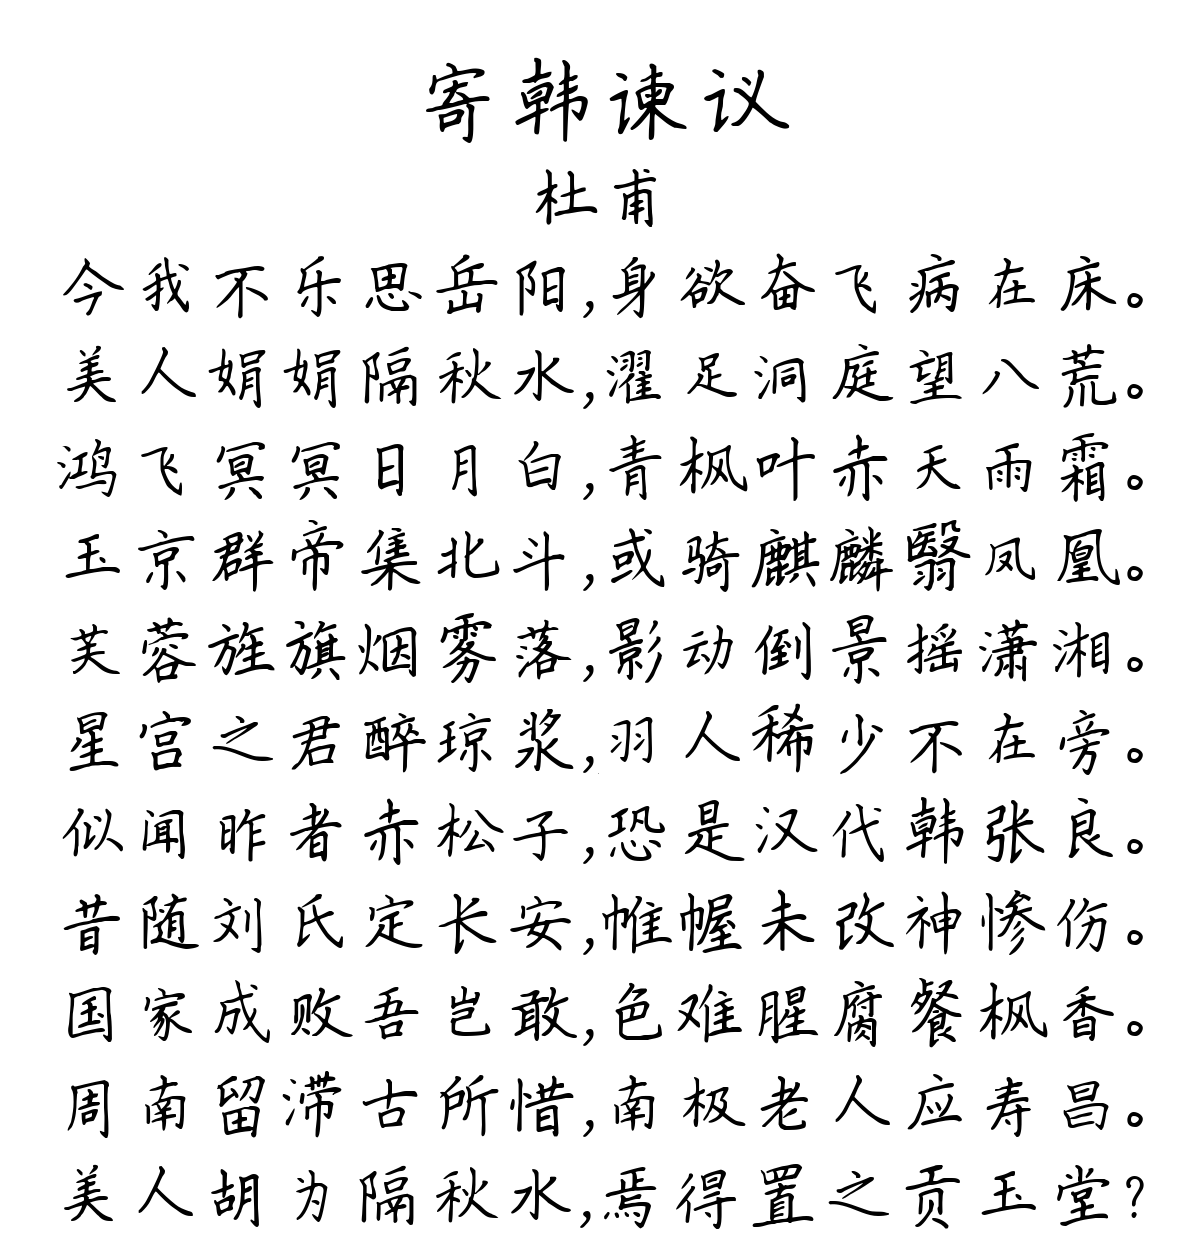 寄韩谏议
杜甫
今我不乐思岳阳,身欲奋飞病在床。
美人娟娟隔秋水,濯足洞庭望八荒。
鸿飞冥冥日月白,青枫叶赤天雨霜。
玉京群帝集北斗,或骑麒麟翳凤凰。
芙蓉旌旗烟雾落,影动倒景摇潇湘。
星宫之君醉琼浆,羽人稀少不在旁。
似闻昨者赤松子,恐是汉代韩张良。
昔随刘氏定长安,帷幄未改神惨伤。
国家成败吾岂敢,色难腥腐餐枫香。
周南留滞古所惜,南极老人应寿昌。
美人胡为隔秋水,焉得置之贡玉堂?